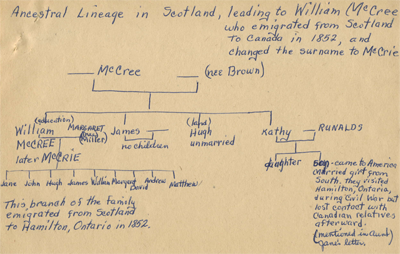 Ancestral Lineage in Scotland, leading to William McCree
who emigrated from Scotland
to Canada in 1852, and
changed the surname to McCrie
McCree (nee Brown)
(education) (lass)
William MARGARET James Hugh Kathy RUNALDS
(Miller) no children unmarried
McCREE
later McCRIE
daughter
Jane John Hugh James William Margaret David Andrew Matthew
This branch of the family
emigrated from Scotland
to Hamilton, Ontario in 1852.
came to America
married girl from
South. they visited
Hamilton, Ontario,
during Civil War but
lost contact with
Canadian relatives
afterward.
(mentioned in Aunt
Jane's letter.